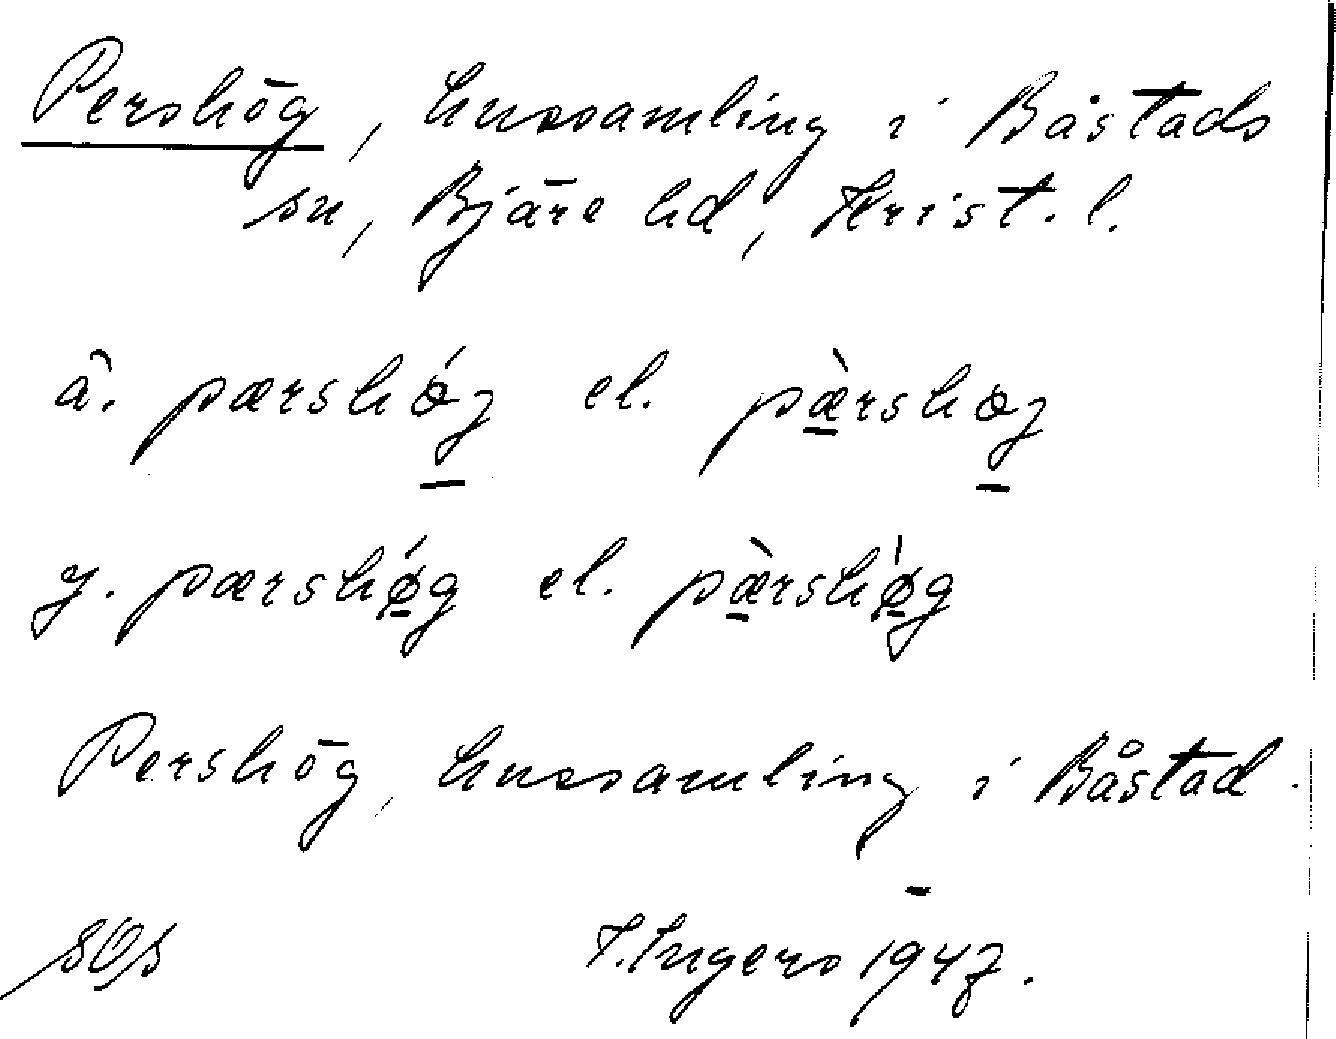 Pershög, hussamling i Båstads
sn, Bjäre hd, Krist. l.
ä. pærshǿʒ el. pæ̀rshøʒ
y. pærshǿg el. pæ̀rshǿg
Pershög, hussamling i Båstad.
SOS I. Ingers 1947.